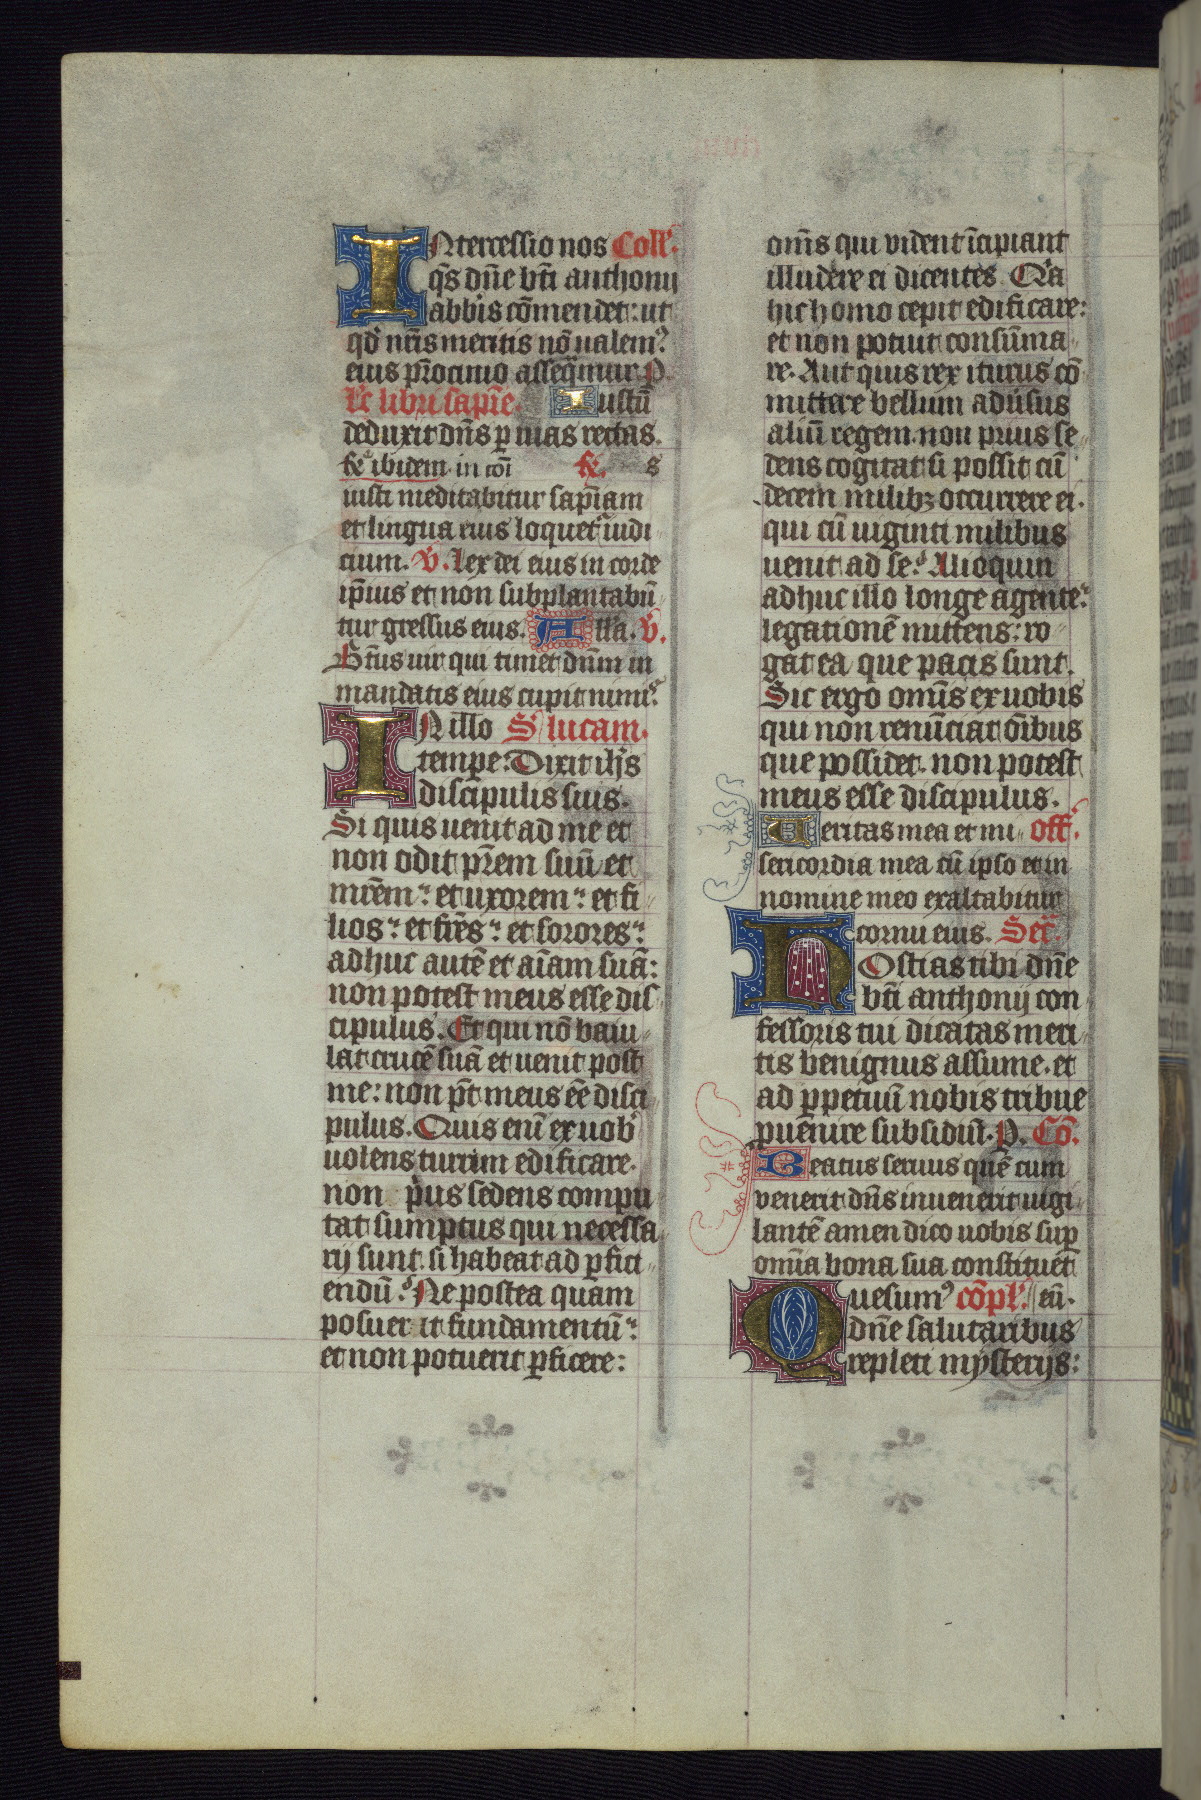 Ntercessio nos Coll'.
q̄s dn̄e bt̄i anthonij
abbis cōmendet: ut
qd' nr̄is meritis nō ualem9.
eius pr̄ocinio assequamur. P.
l'c libri sapīe. Iustū
deduxit dn̄s ꝑ uias rectas.
fc' ibidem. in cōi fc'. s
iusti meditabitur sapīam
et lingua eius loquet' iudi-
cium. V. Lex dei eius in corde
ip̄ius et non subplantabū-
tur gressus eius. All'a. V.
Bt̄us uir qui timet dn̄m in
mandatis eius cupit nimis.
IN illo S' lucam.
tempe: Dixit ih̄s
discipulis suis.
Si quis uenit ad me et
non odit pr̄em suū et
mr̄em: et uxorem: et fi-
lios: et fr̄es: et sorores:
adhuc autē et aīam suā:
non potest meus esse dis-
cipulus. Et qui nō baiu-
lat crucē suā et uenit post
me: non pt̄ meus eē disci-
pulus. Quis enī ex uob'
uolens turrim edificare.
non p̄us sedens compu
tat sumptus qui necessa-
rij sunt. si habeat ad ꝑfici-
endū. Ne postea quam
posuerit fundamentū:
et non potuerit ꝑficere:
om̄s qui vident īcipiant
illudere ei dicentes. Q'a
hic homo cepit edificare:
et non potuit consūma-
re. Aut quis rex iturus cō
mittere bellum aduersus
aliū regem. non prius se-
dens cogitat si possit cū
decem milibꝫ occurrere ei.
qui cū uiginti milibus
uenit ad se. Alioquin
adhuc illo longe agente.
legationē mittens: ro
gat ea que pacis sunt.
Sic ergo omīs ex uobis
qui non renūciat ōibus
que possidet. non potest
meus esse discipulus.
Ueritas mea et mi- off'.
sericordia mea cū ipso et in
nomine meo exaltabitur
cornu eius. Sec̄.
HOstias tibi dn̄e
bt̄i anthonij con-
fessoris tui dicatas meri-
tis benignus assume. et
ad ꝑpetuū nobis tribue
puēnire subsidiū. P. Cō.
Beatus seruus quē cum
venerit dn̄s inuenerit uigi-
lantē amen dico uobis suꝑ
omīa bona sua constituet
Quesum9 cōpl'. eū.
dn̄e salutaribus
repleti mysterijs: